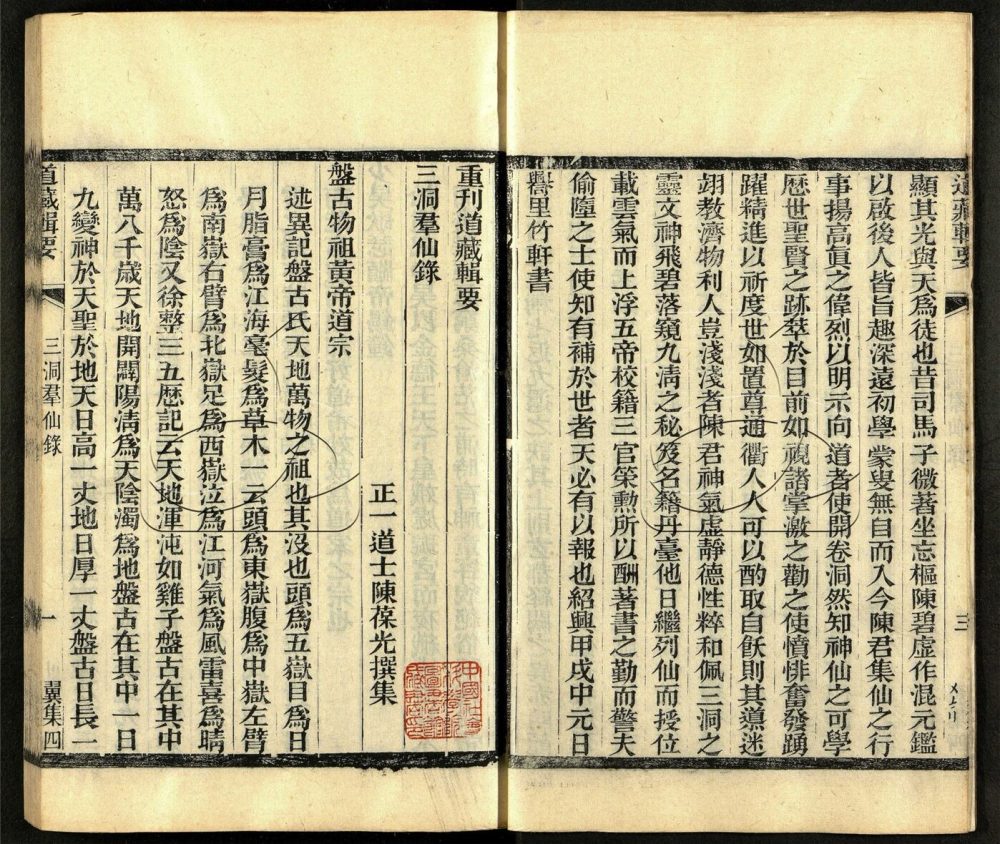 道藏輯要
三
顯其光與天爲徒也昔司馬子微著坐忘樞陳碧虛作混元鑑
以啟後人皆旨趣深遠初學蒙叟無自而入今陳君集仙之行
事揚高眞之偉烈以明示向道者使開卷洞然知神仙之可學
歴世聖賢之跡萃於目前如視諸掌激之勸之使憤悱奮發踴
躍精進以祈度世如置尊通衢人人可以酌取自飫則其導迷
翊教濟物利人豈淺淺者陳君神氣虛靜德性粹和佩三洞之
靈文神飛碧落窺九淸之秘笈名籍丹臺他日繼列仙而授位
載雲氣而上浮五帝校籍三官策勲所以酬著書之勤而警夫
偷墮之士使知有補於世者天必有以報也紹興甲戌中元日
譽里竹軒書
重刊道藏輯要
三洞羣仙錄
正一道士陳葆光撰集
盤古物祖黃帝道宗
述異記盤古氏天地萬物之祖也其沒也頭爲五嶽目爲日
月脂膏爲江海毫髮爲草木一云頭爲東嶽腹爲中嶽左臂
爲南嶽右臂爲北嶽足爲西嶽泣爲江河氣爲風雷喜爲晴
怒爲陰又徐整三五歴記云天地渾沌如雞子盤古在其中
萬八千歲天地開闢陽淸爲天陰濁爲地盤古在其中一日
九變神於天聖於地天日高一丈地日厚一丈盤古日長一
道藏輯要
三洞羣仙錄
一
翼集四